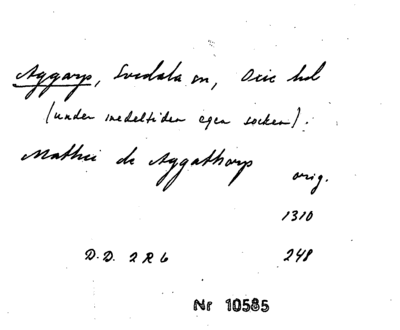 Aggarp, Svedala sn, Oxie hd
(under medeltiden egen socken).
Mathei de Aggathorp
orig.
1310
D.D. 2 R 6 248
Nr 10585